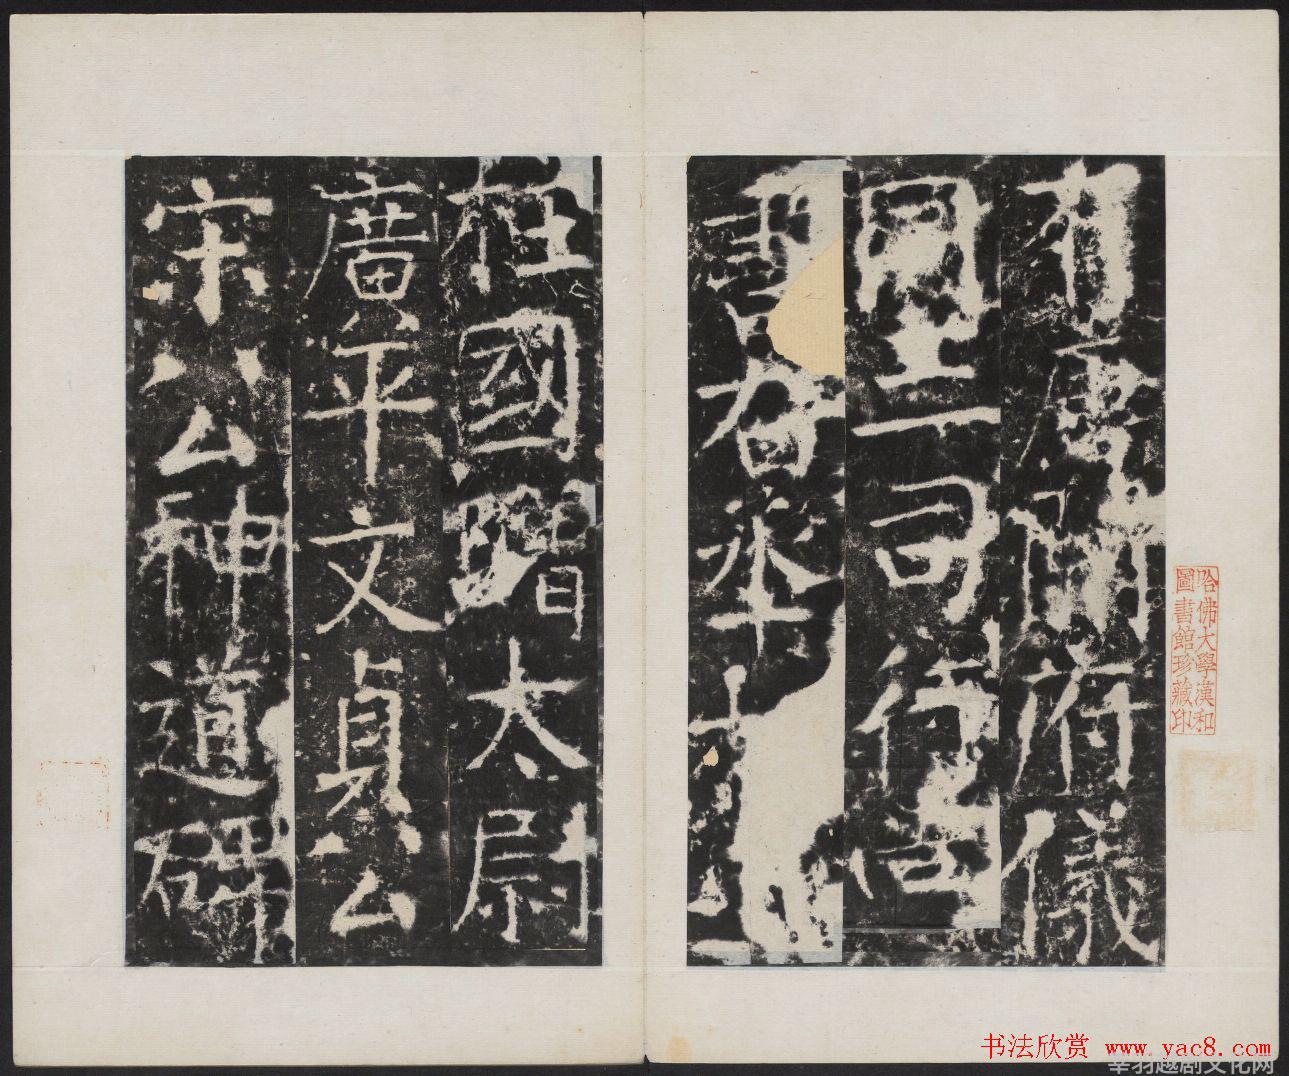 有唐開府儀
同三司行尚
書右丞上
柱國贈太尉
廣平文貞公
宋公神道碑
哈佛大學漢和
圖書館珍藏印
书法欣赏 www.yac8.com
莘羽越剧文化网